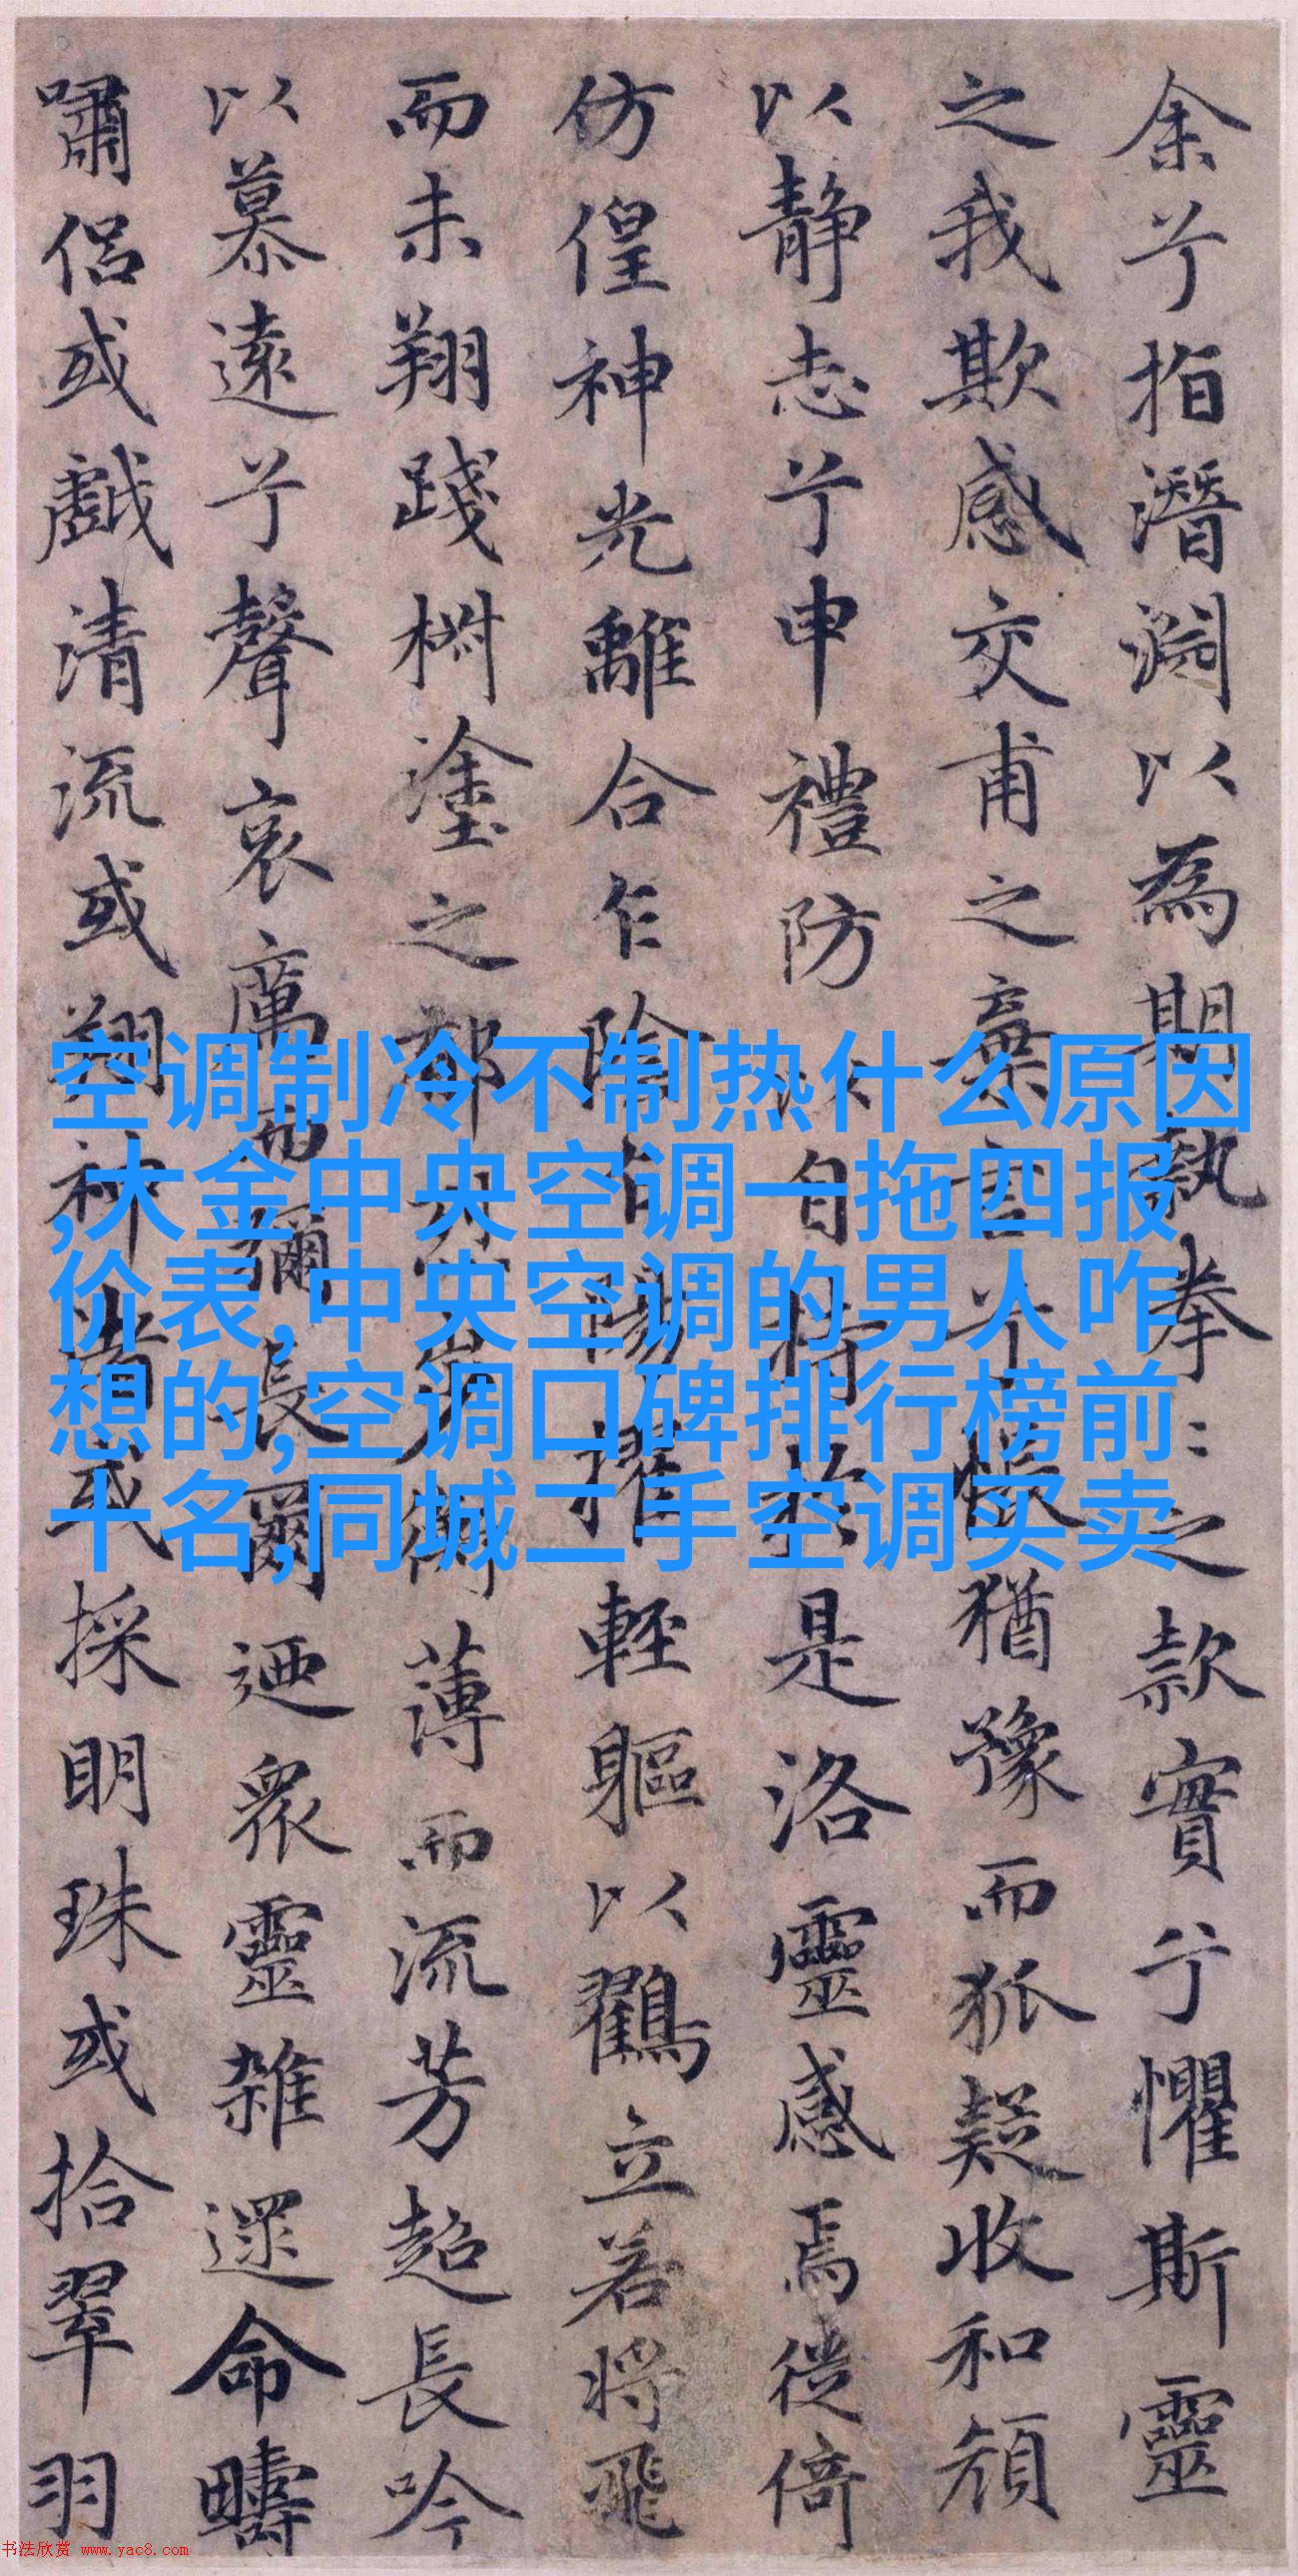 余兮指潛淵以為期執拳〻之款實兮懼斯靈
之我欺感交甫之棄言兮悵猶豫而狐疑收和顏
以靜志兮申禮防以自持於是洛靈感焉徙倚
仿偟神光離合乍陰乍陽擢輕軀以鶴立若將飛
而未翔踐椒塗之郁烈步蘅薄而流芳超長吟
以慕遠兮聲哀厲而彌長爾迺眾靈雜遝命疇
嘯侶或戲清流或翔神渚或採明珠或拾翠羽
空调制冷不制热什么原因
,大金中央空调一拖四报
价表,中央空调的男人咋
想的,空调口碑排行榜前
十名,同城二手空调买卖
书法欣赏 www.yac8.com